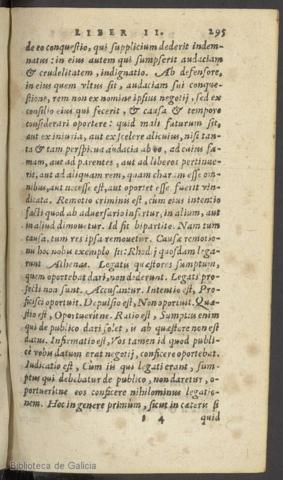 LIBER II. 295
de eo conquestio, qui supplicium dederit indem-
natus: in eius autem qui sumpserit audaciam
& crudelitatem, indignatio. Ab defensore,
in eius quem vltus sit, audaciam sui conque-
stione, rem non ex nomine ipsius negotij, sed ex
consilio eius qui fecerit, & causa & tempore
considerari oportere: quid mali futurum sit,
aut ex iniuria, aut ex scelere alicuius, nisi tan-
ta & tam perspicua audacia ab eo, ad cuius fa-
mam, aut ad parentes, aut ad liberos pertinue-
rit, aut ad aliquam rem, quam charam esse om-
nibus, aut necesse est, aut oportet esse fuerit vin-
dicata. Remotio criminis est, cum eius intentio
facti quod ab aduersario infertur, in alium, aut
in aliud dimouetur. Id fit bipartite. Nam tum
causa, tum res ipsa remouetur. Causæ remotio-
nis hoc nobis exemplo sit: Rhodij quosdam lega-
runt Athenas. Legatis quæstores sumptum,
quem oportebat dari, non dederunt. Legati pro-
fecti non sunt. Accusantur. Intentio est, Pro-
ficisci oportuit. Depulsio est, Non oportuit. Quæ-
stio est, Oportueritne. Ratio est, Sumptus enim
qui de publico dari solet, is ab quæstore non est
datus. Infirmatio est, Vos tamen id quod publi-
cè vobis datum erat negotij, conficere oportebat.
Iudicatio est, Cum iis qui legati erant, sum-
ptus qui debebatur de publico, non daretur, o-
portueritne eos conficere nihilominus legatio-
nem. Hoc in genere primum, sicut in cæteris si
4
quid
Biblioteca de Galicia